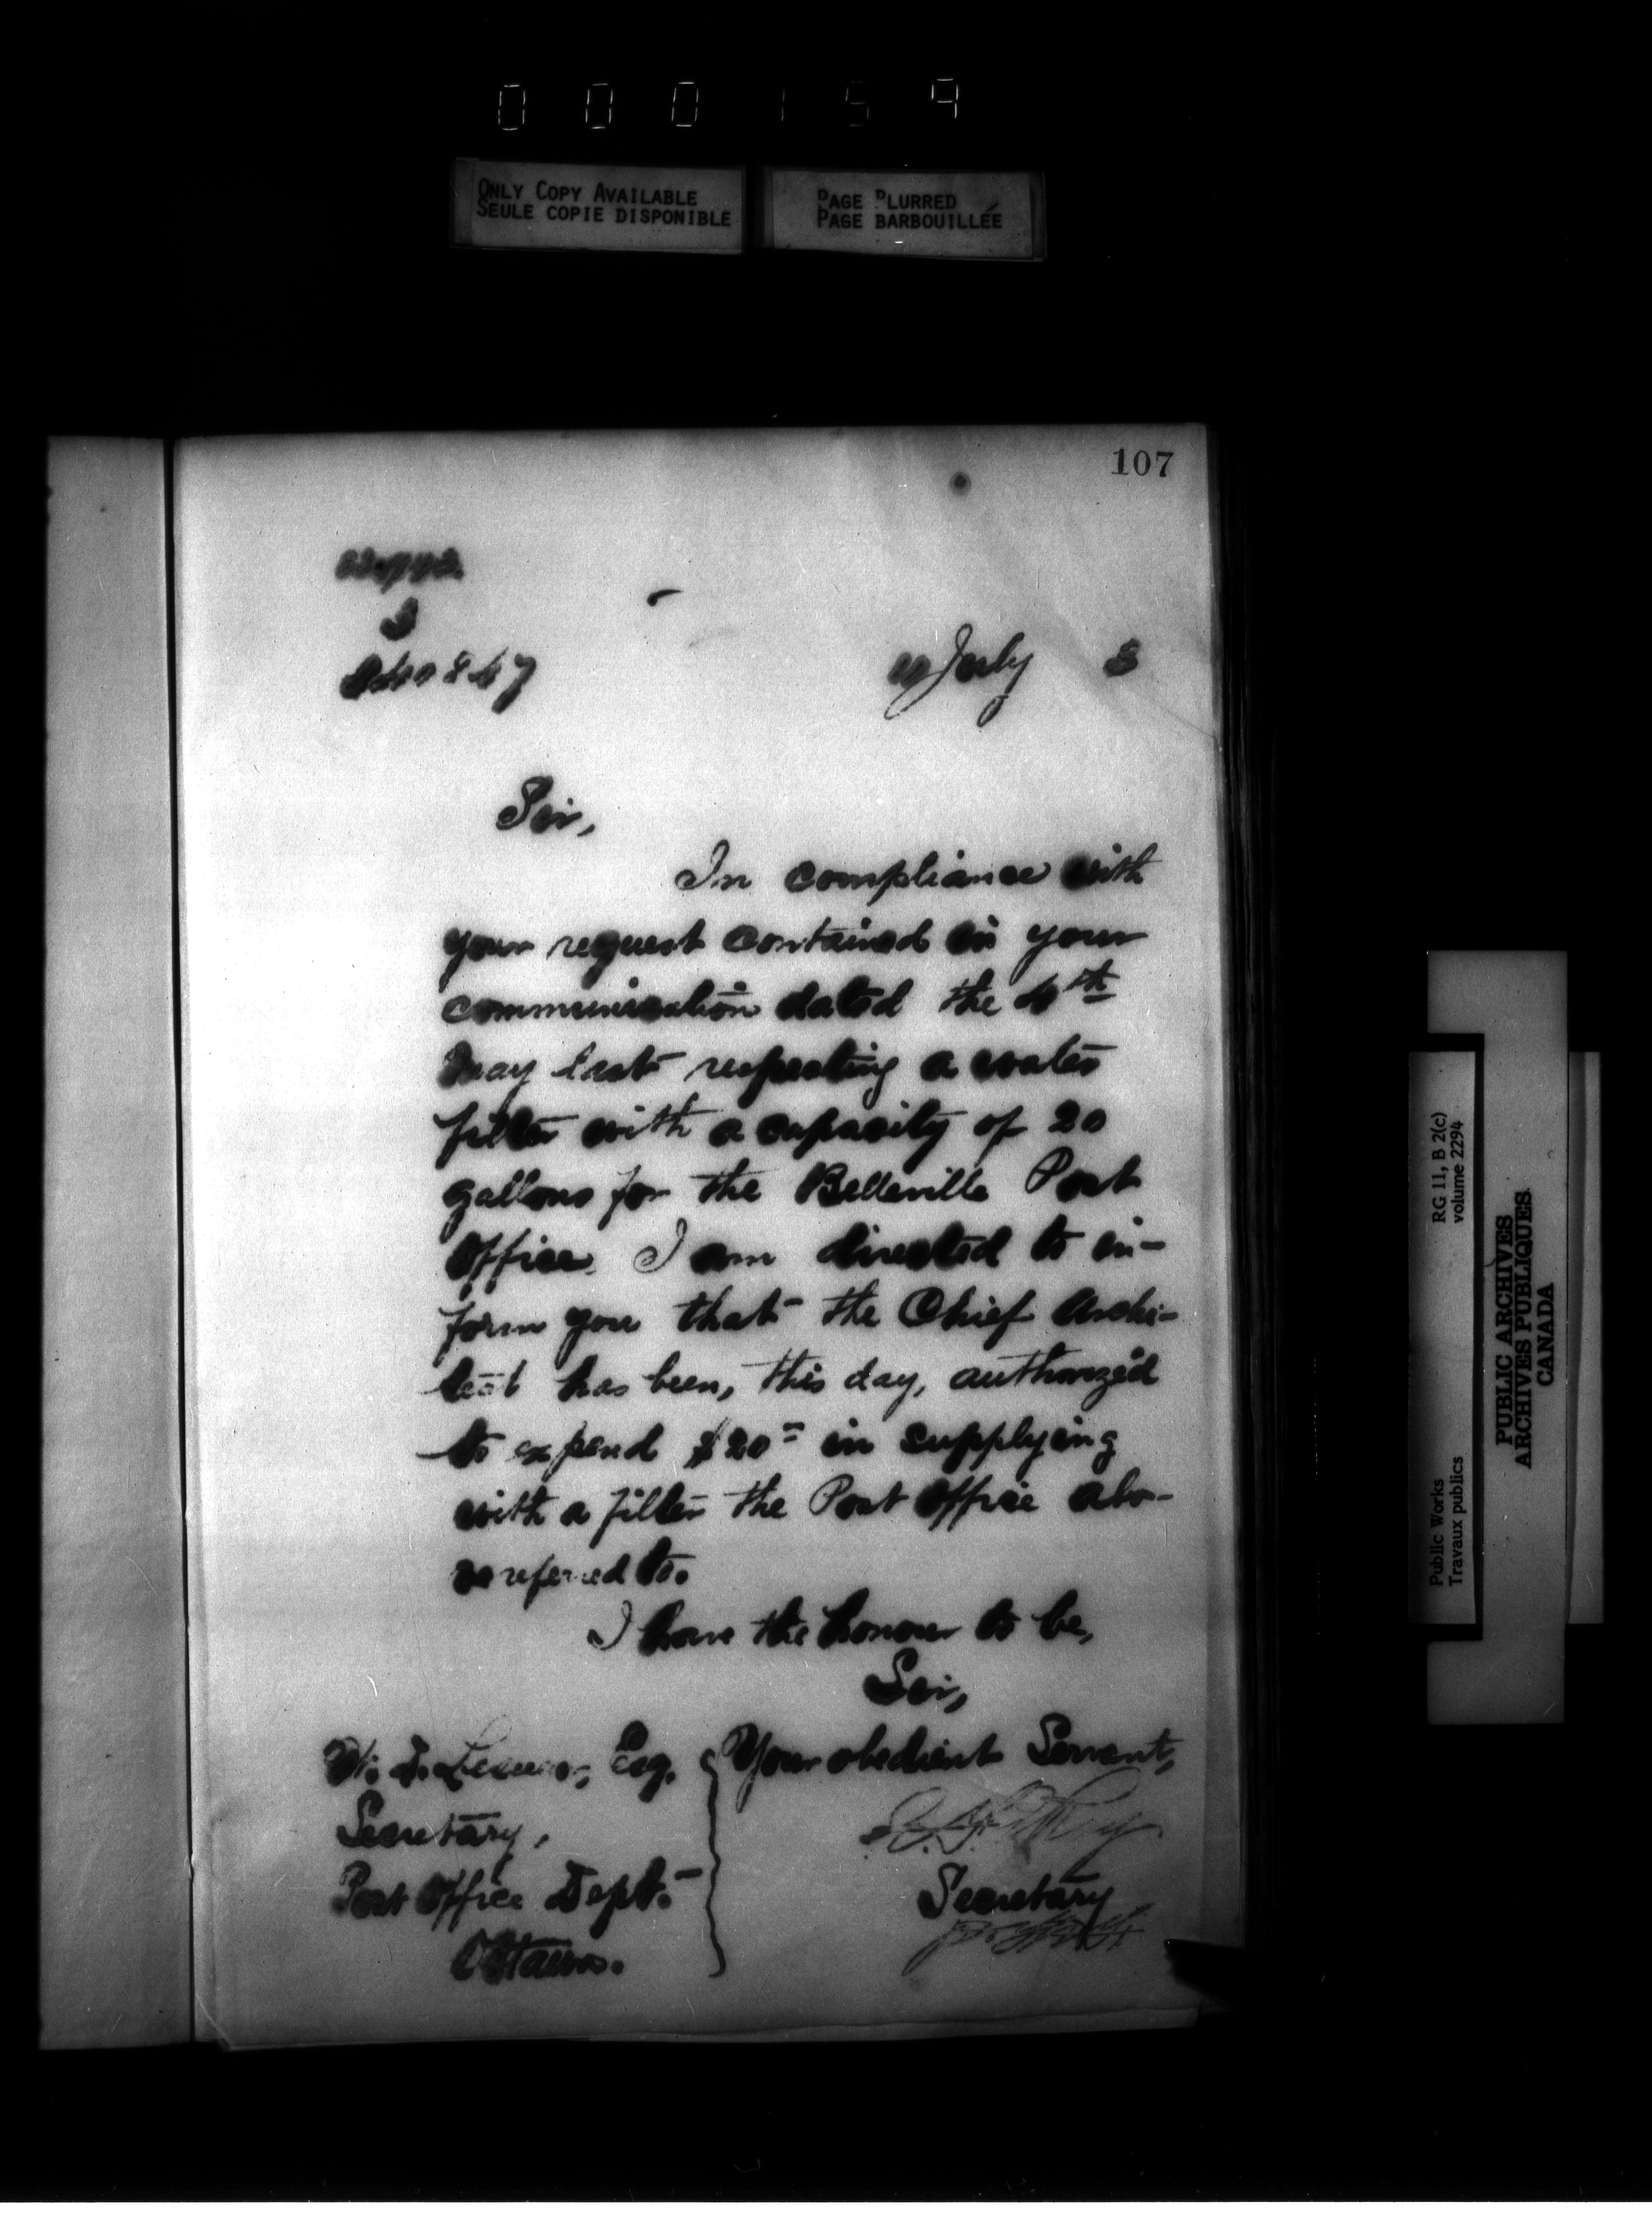 000159
ONLY COPY AVAILABLE
SEULE COPIE DISPONIBLE
PAGE BLURRED
PAGE BARBOUILLÉE
107
July
Sir,
In compliance with
your request contained in your
communication dated the 4th
May last respecting a water
filter with a capacity of 20
gallons for the Belleville Post
Office. I am directed to in-
form you that the Chief Archi-
tect has been, this day, authorized
to expend $20= in supplying
with a filter the Post Office abo-
ve referred to.
I have the honour to be,
Sir,
Your obedient Servant,
Secretary
W. D. Esq.
Secretary,
Post Office Dept.
Ottawa.
RG 11, B 2(c)
volume 2294
Public Works
Travaux publics
PUBLIC ARCHIVES
ARCHIVES PUBLIQUES
CANADA